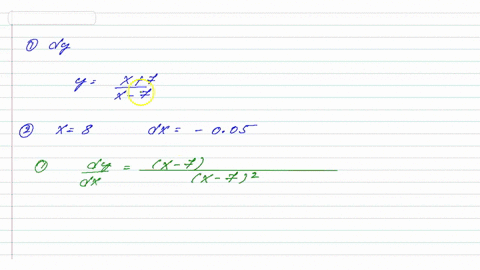 ① dy
y = x+7 / x-7
② x = 8 dx = - 0.05
① dy/dx = (x-7) / (x-7)²